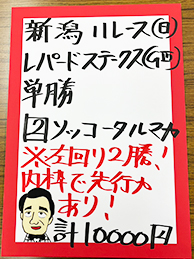 新潟11レース(日)
レパードステークス(GⅢ)
単勝
2ゾッコータルマカ
※左回り2勝!
内枠で先行力
あり!
計10000円